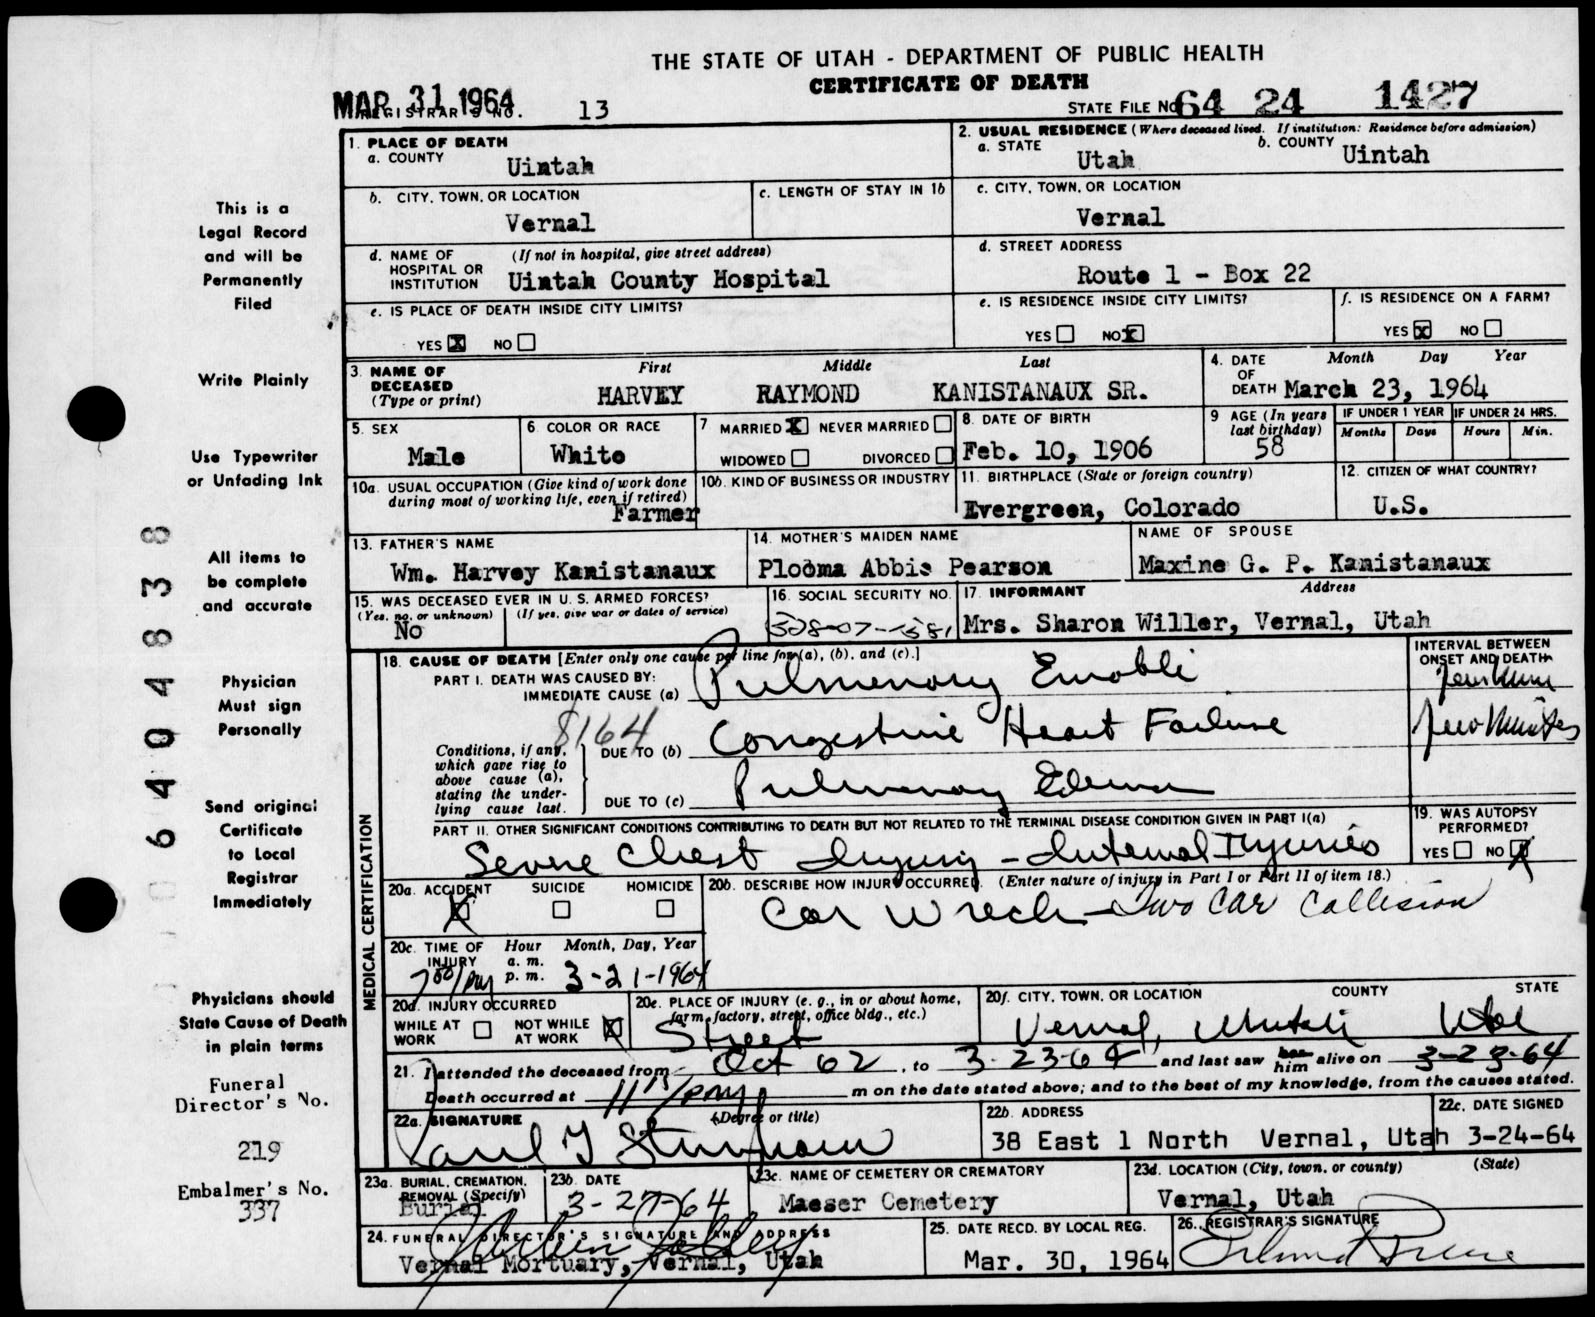 THE STATE OF UTAH - DEPARTMENT OF PUBLIC HEALTH
CERTIFICATE OF DEATH
MAR 31 1964
REGISTRAR'S NO. 13
STATE FILE NO. 64 24 1427
1. PLACE OF DEATH
a. COUNTY
Uintah
2. USUAL RESIDENCE (Where deceased lived. If institution: Residence before admission)
a. STATE
Utah
b. COUNTY
Uintah
b. CITY, TOWN, OR LOCATION
Vernal
c. LENGTH OF STAY IN 1b
c. CITY, TOWN, OR LOCATION
Vernal
d. NAME OF HOSPITAL OR INSTITUTION
(If not in hospital, give street address)
Uintah County Hospital
d. STREET ADDRESS
Route 1 - Box 22
e. IS PLACE OF DEATH INSIDE CITY LIMITS?
YES X NO
e. IS RESIDENCE INSIDE CITY LIMITS?
YES NO X
f. IS RESIDENCE ON A FARM?
YES X NO
3. NAME OF DECEASED
(Type or print)
First Middle Last
HARVEY RAYMOND KANISTANAUX SR.
4. DATE OF DEATH
Month Day Year
March 23, 1964
5. SEX
Male
6. COLOR OR RACE
White
7 MARRIED X NEVER MARRIED
WIDOWED DIVORCED
8. DATE OF BIRTH
Feb. 10, 1906
9 AGE (In years last birthday)
58
IF UNDER 1 YEAR
Months Days
IF UNDER 24 HRS.
Hours Min.
10a. USUAL OCCUPATION (Give kind of work done during most of working life, even if retired)
Farmer
10b. KIND OF BUSINESS OR INDUSTRY
11. BIRTHPLACE (State or foreign country)
Evergreen, Colorado
12. CITIZEN OF WHAT COUNTRY?
U.S.
13. FATHER'S NAME
Wm. Harvey Kanistanaux
14. MOTHER'S MAIDEN NAME
Abbie Pearson
NAME OF SPOUSE
Maxine G. P. Kanistanaux
15. WAS DECEASED EVER IN U. S. ARMED FORCES?
(Yes, no, or unknown) (If yes, give war or dates of service)
No
16. SOCIAL SECURITY NO.
17. INFORMANT Address
Mrs. Sharon Willer, Vernal, Utah
MEDICAL CERTIFICATION
18. CAUSE OF DEATH [Enter only one cause per line for (a), (b), and (c).]
INTERVAL BETWEEN ONSET AND DEATH
PART I. DEATH WAS CAUSED BY:
IMMEDIATE CAUSE (a) Pulmonary Emobli
8164
Conditions, if any, which gave rise to above cause (a), stating the underlying cause last.
DUE TO (b) Congestive Heart Failure
few Minutes
DUE TO (c) Pulmonary Edema
PART II. OTHER SIGNIFICANT CONDITIONS CONTRIBUTING TO DEATH BUT NOT RELATED TO THE TERMINAL DISEASE CONDITION GIVEN IN PART I(a)
Severe Chest Injury - Internal Injuries
19. WAS AUTOPSY PERFORMED?
YES NO X
20a. ACCIDENT SUICIDE HOMICIDE
X
20b. DESCRIBE HOW INJURY OCCURRED. (Enter nature of injury in Part I or Part II of item 18.)
Car Wreck - Two Car Collision
20c. TIME OF INJURY
Hour Month, Day, Year
a. m.
p. m.
7 00/pm 3-21-1964
20d. INJURY OCCURRED
WHILE AT WORK NOT WHILE AT WORK X
20e. PLACE OF INJURY (e. g., in or about home, farm, factory, street, office bldg., etc.)
Street
20f. CITY, TOWN, OR LOCATION COUNTY STATE
Vernal, Uintah Utah
21. I attended the deceased from Oct 62, to 3-23-64 and last saw him alive on 3-23-64
Death occurred at 11 15/pm m on the date stated above; and to the best of my knowledge, from the causes stated.
22a. SIGNATURE (Degree or title)
22b. ADDRESS
38 East 1 North Vernal, Utah
22c. DATE SIGNED
3-24-64
23a. BURIAL, CREMATION, REMOVAL (Specify)
Burial
23b. DATE
3-27-64
23c. NAME OF CEMETERY OR CREMATORY
Maeser Cemetery
23d. LOCATION (City, town, or county) (State)
Vernal, Utah
24. FUNERAL DIRECTOR'S SIGNATURE AND ADDRESS
Vernal Mortuary, Vernal, Utah
25. DATE RECD. BY LOCAL REG.
Mar. 30, 1964
26. REGISTRAR'S SIGNATURE
This is a
Legal Record
and will be
Permanently
Filed
Write Plainly
Use Typewriter
or Unfading Ink
All items to
be complete
and accurate
Physician
Must sign
Personally
Send original
Certificate
to Local
Registrar
Immediately
Physicians should
State Cause of Death
in plain terms
Funeral
Director's No.
219
Embalmer's No.
337